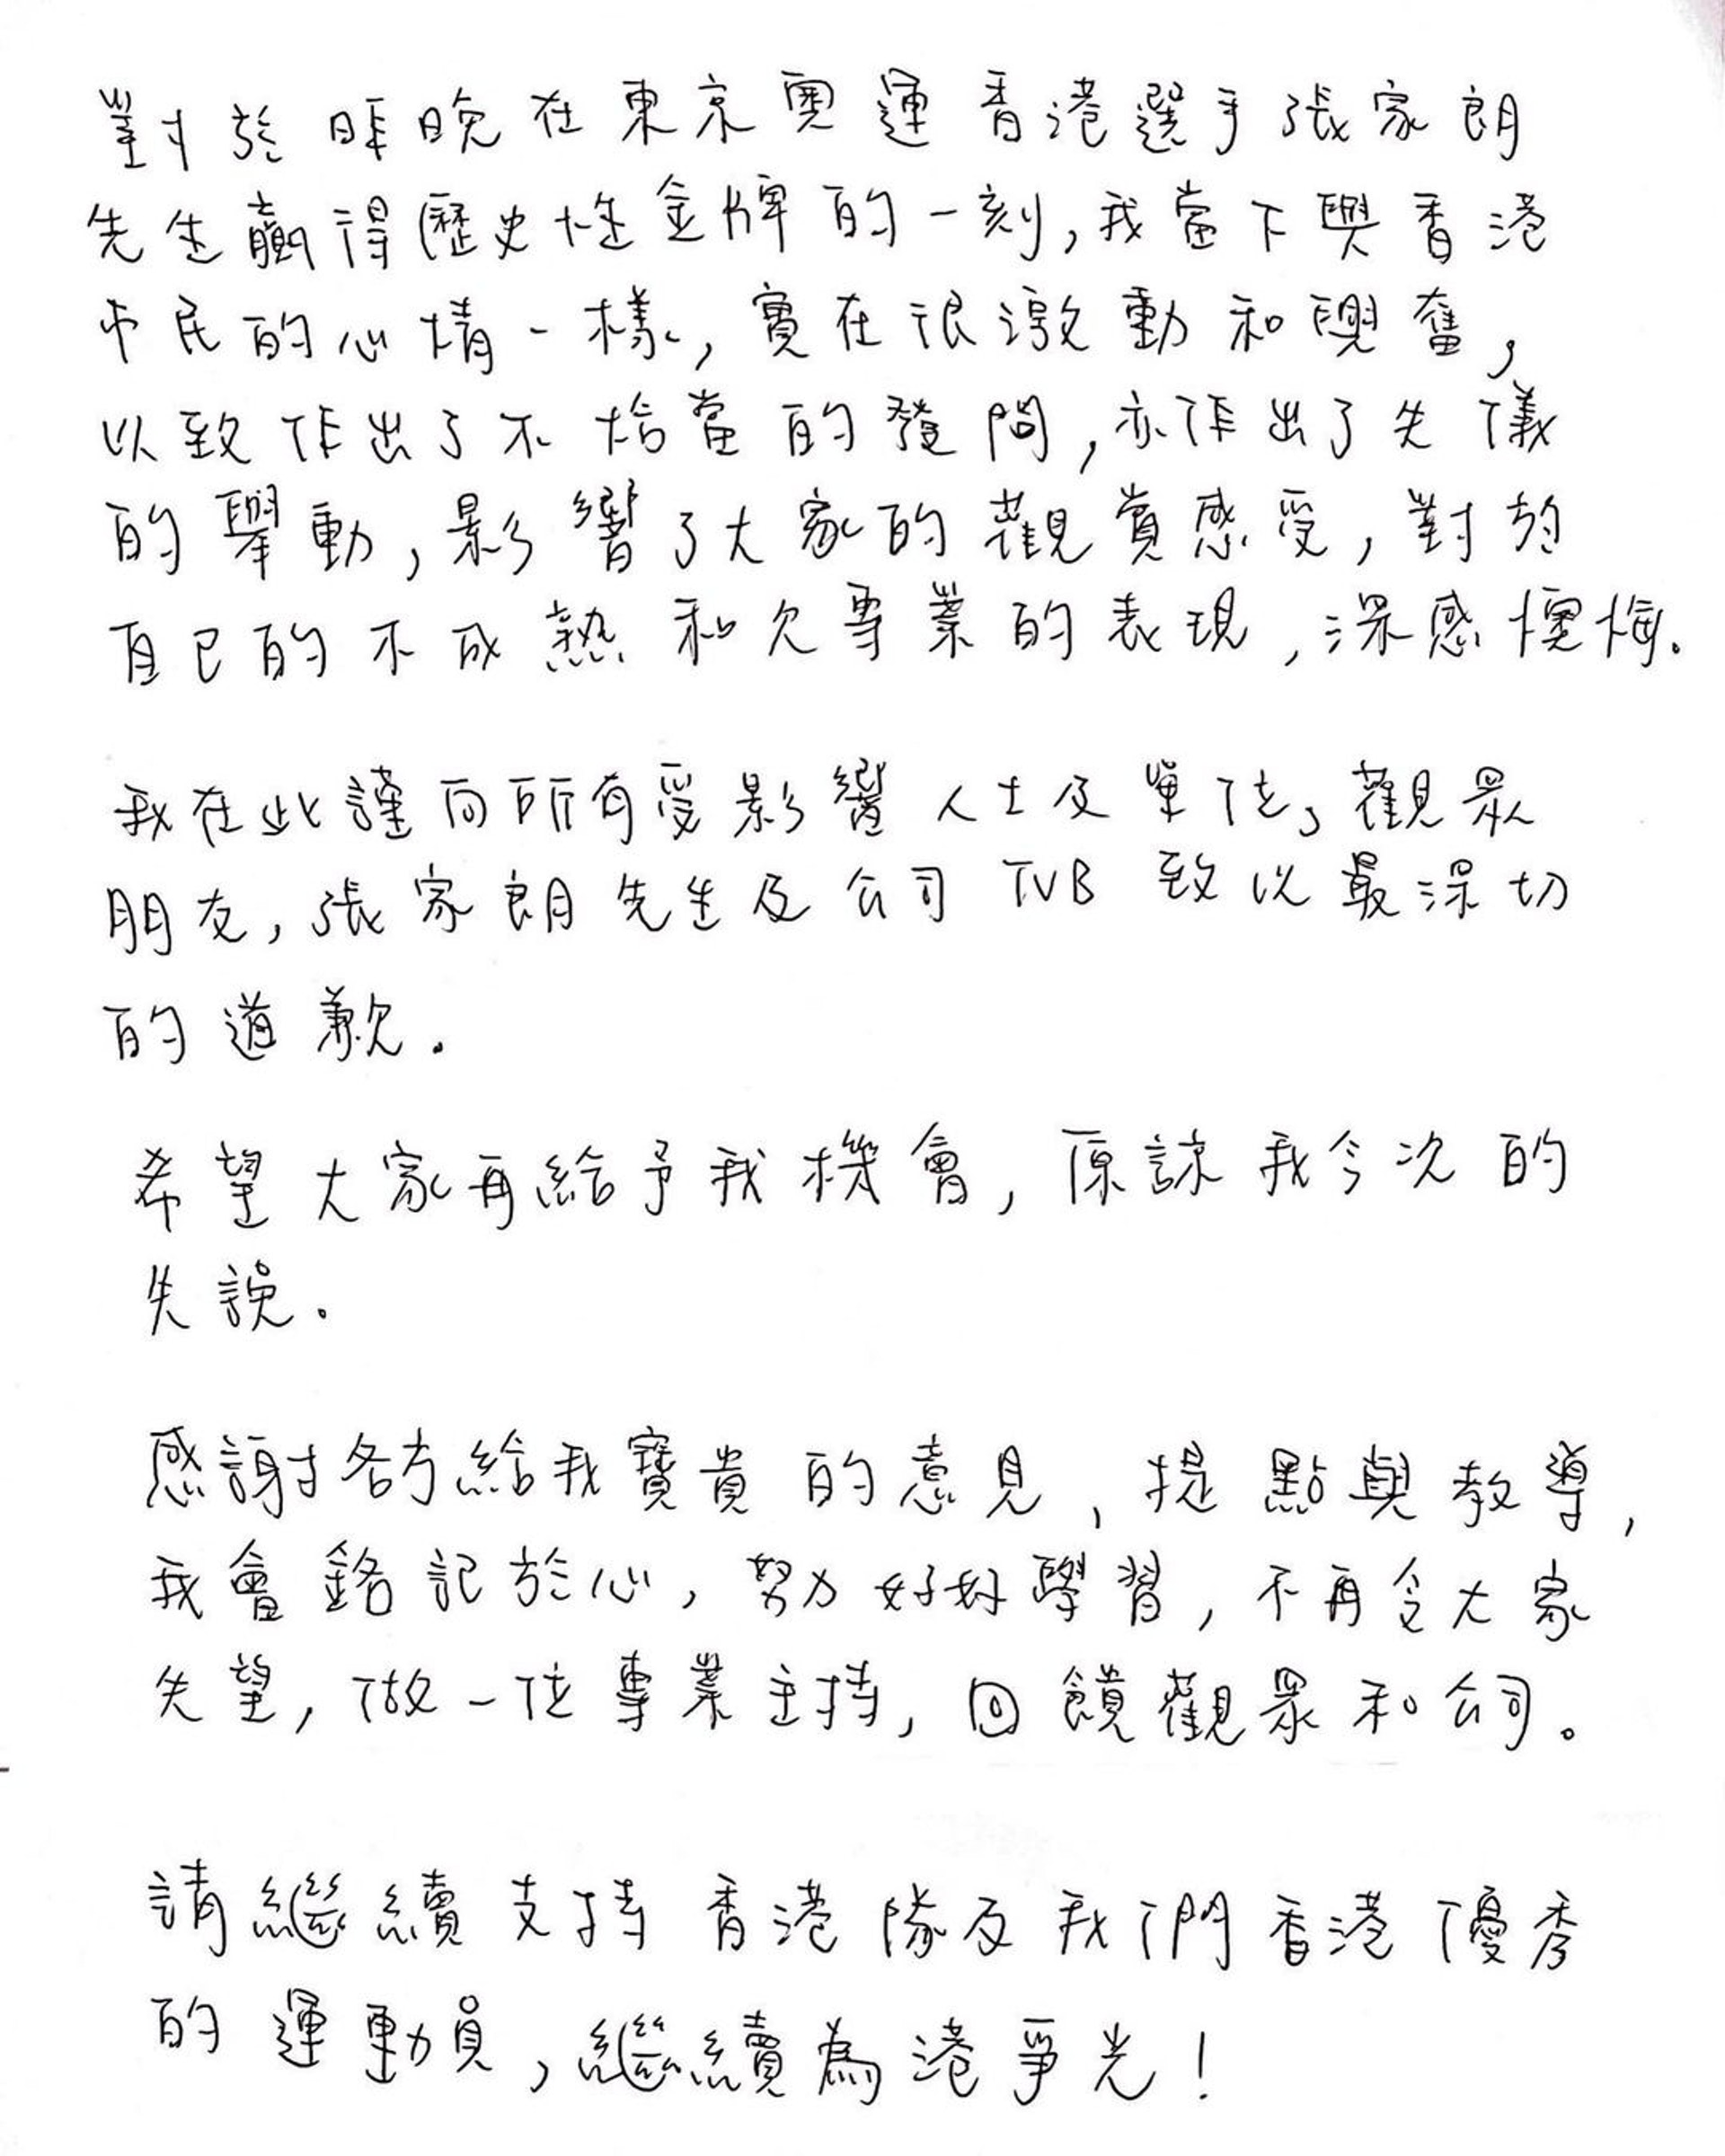 對於昨晚在東京奧運香港選手張家朗
先生贏得歷史性金牌的一刻,我當下與香港
市民的心情一樣,實在很激動和興奮,
以致作出了不恰當的發問,亦作出了失儀
的舉動,影響了大家的觀賞感受,對於
自己的不成熟和欠專業的表現,深感懊悔.
我在此謹向所有受影響人士及單位,觀眾
朋友,張家朗先生及公司TVB致以最深切
的道歉.
希望大家再給予我機會,原諒我今次的
失誤。
感謝各方給我寶貴的意見,提點與教導,
我會銘記於心,努力好好學習,不再令大家
失望,做一位專業主持,回饋觀眾和公司。
請繼續支持香港隊及我們香港優秀
的運動員,繼續為港爭光!